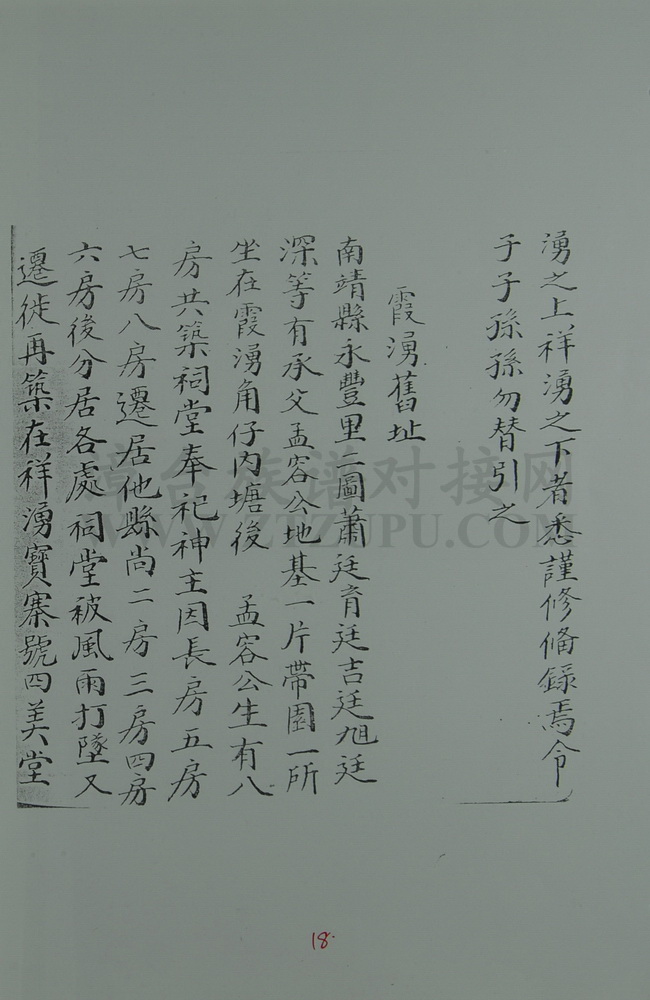 湧之上祥湧之下者悉謹修偹録焉令
于子孫孫勿替引之
霞湧舊址
南靖縣永豐里二圖蕭廷育廷吉廷旭廷
深等有承父孟容公地基一片帶園一所
坐在霞湧角仔内塘後 孟容公生有八
房共築祠堂奉祀神主因長房五房
七房八房遷居他縣尚二房三房四房
六房後分居各處祠堂被風雨打墜又
遷徙再築在祥湧寶寨號四美堂
漳台族谱对接网
WWW.ZTZUPU.COM
18